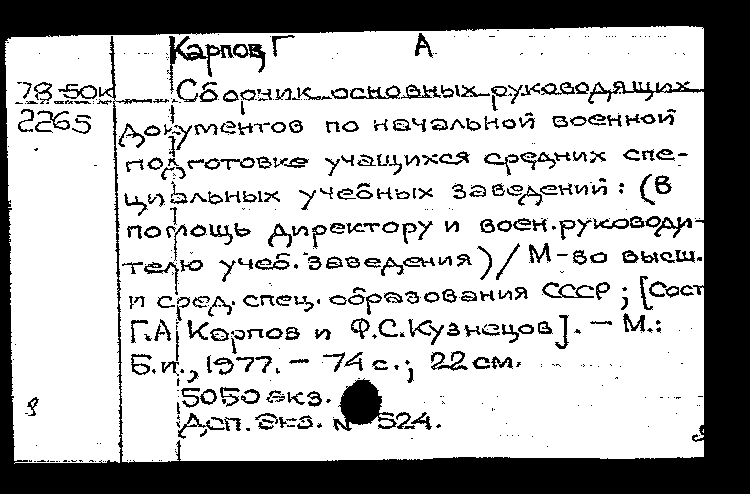 Карпов, Г А
78-50к Сборник основных руководящих
2265 документов по начальной военной
подготовке учащихся средних спе-
циальных учебных заведений: (В
помощь директору и воен.руководи-
телю учеб. заведения) / М-во высш.
и сред. спец. образования СССР; [Сост
Г.А Карпов и Ф.С.Кузнецов]. – М.:
Б.и., 1977. – 74 с.; 22 см.
5050 экз.
Доп. экз. N 524.